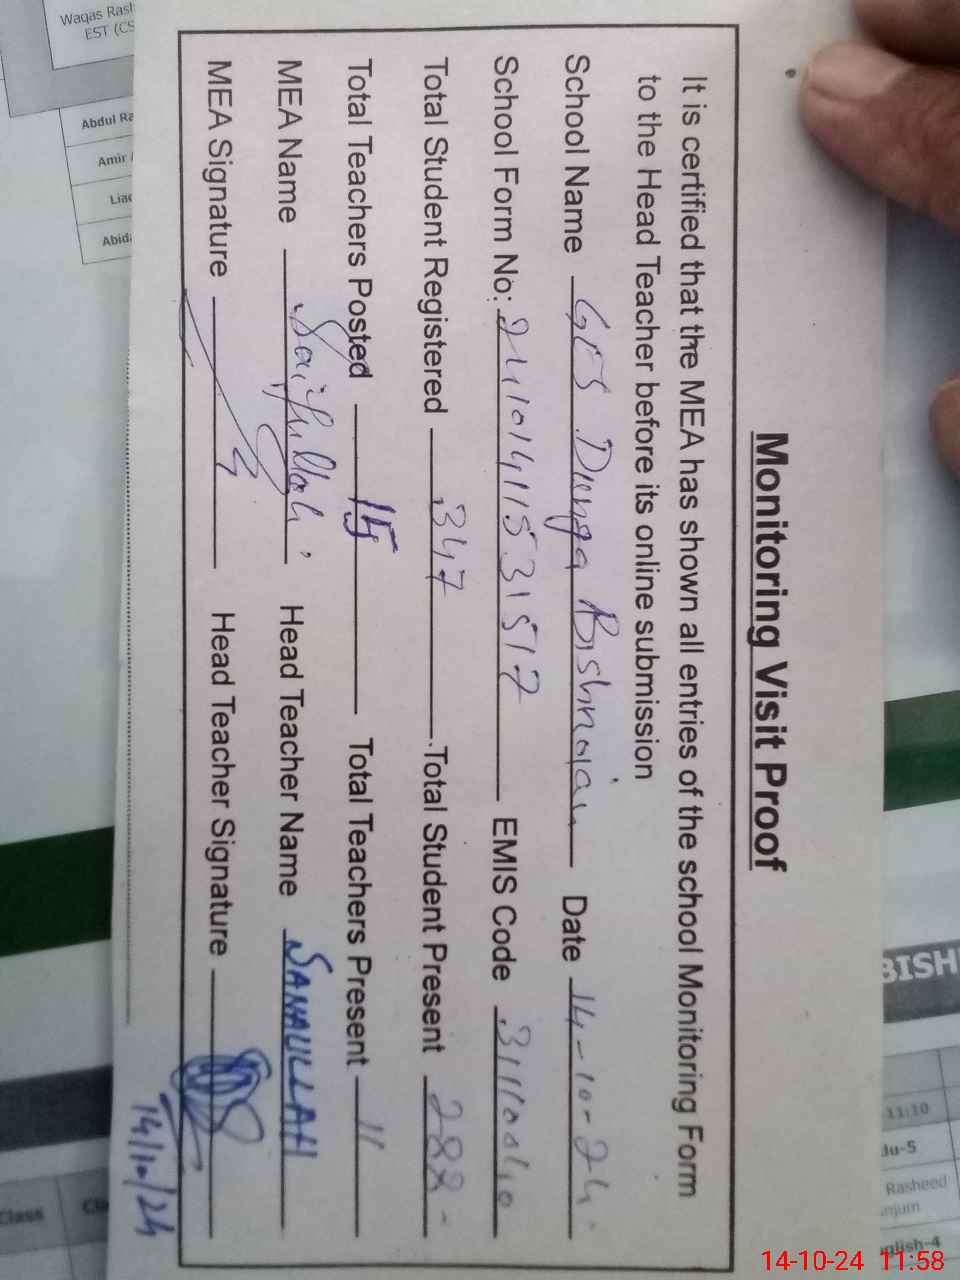 Monitoring Visit Proof
It is certified that the MEA has shown all entries of the school Monitoring Form
to the Head Teacher before its online submission
School Name GES Dunga Bishnoian Date 14-10-24
School Form No: EMIS Code 31110040
Total Student Registered 347 Total Student Present 288
Total Teachers Posted 15 Total Teachers Present 11
MEA Name Saifullah Head Teacher Name SANAULLAH
MEA Signature Head Teacher Signature
14/10/24
Waqas Rash
EST (CS
Abdul Ra
Amir
Liaq
Abid
BISH
11:10
du-5
Rasheed
njum
nglish-4
Class Cla
14-10-24 11:58